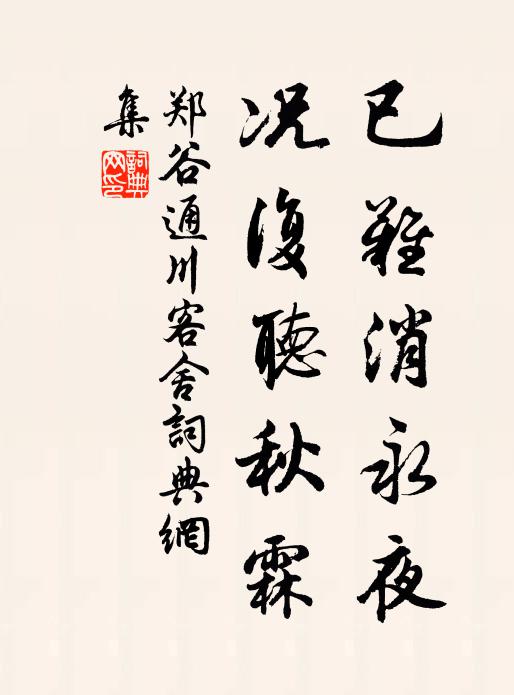 已難消永夜
況復聽秋霖
郑谷通川客舍詞典網
集
詞典网印